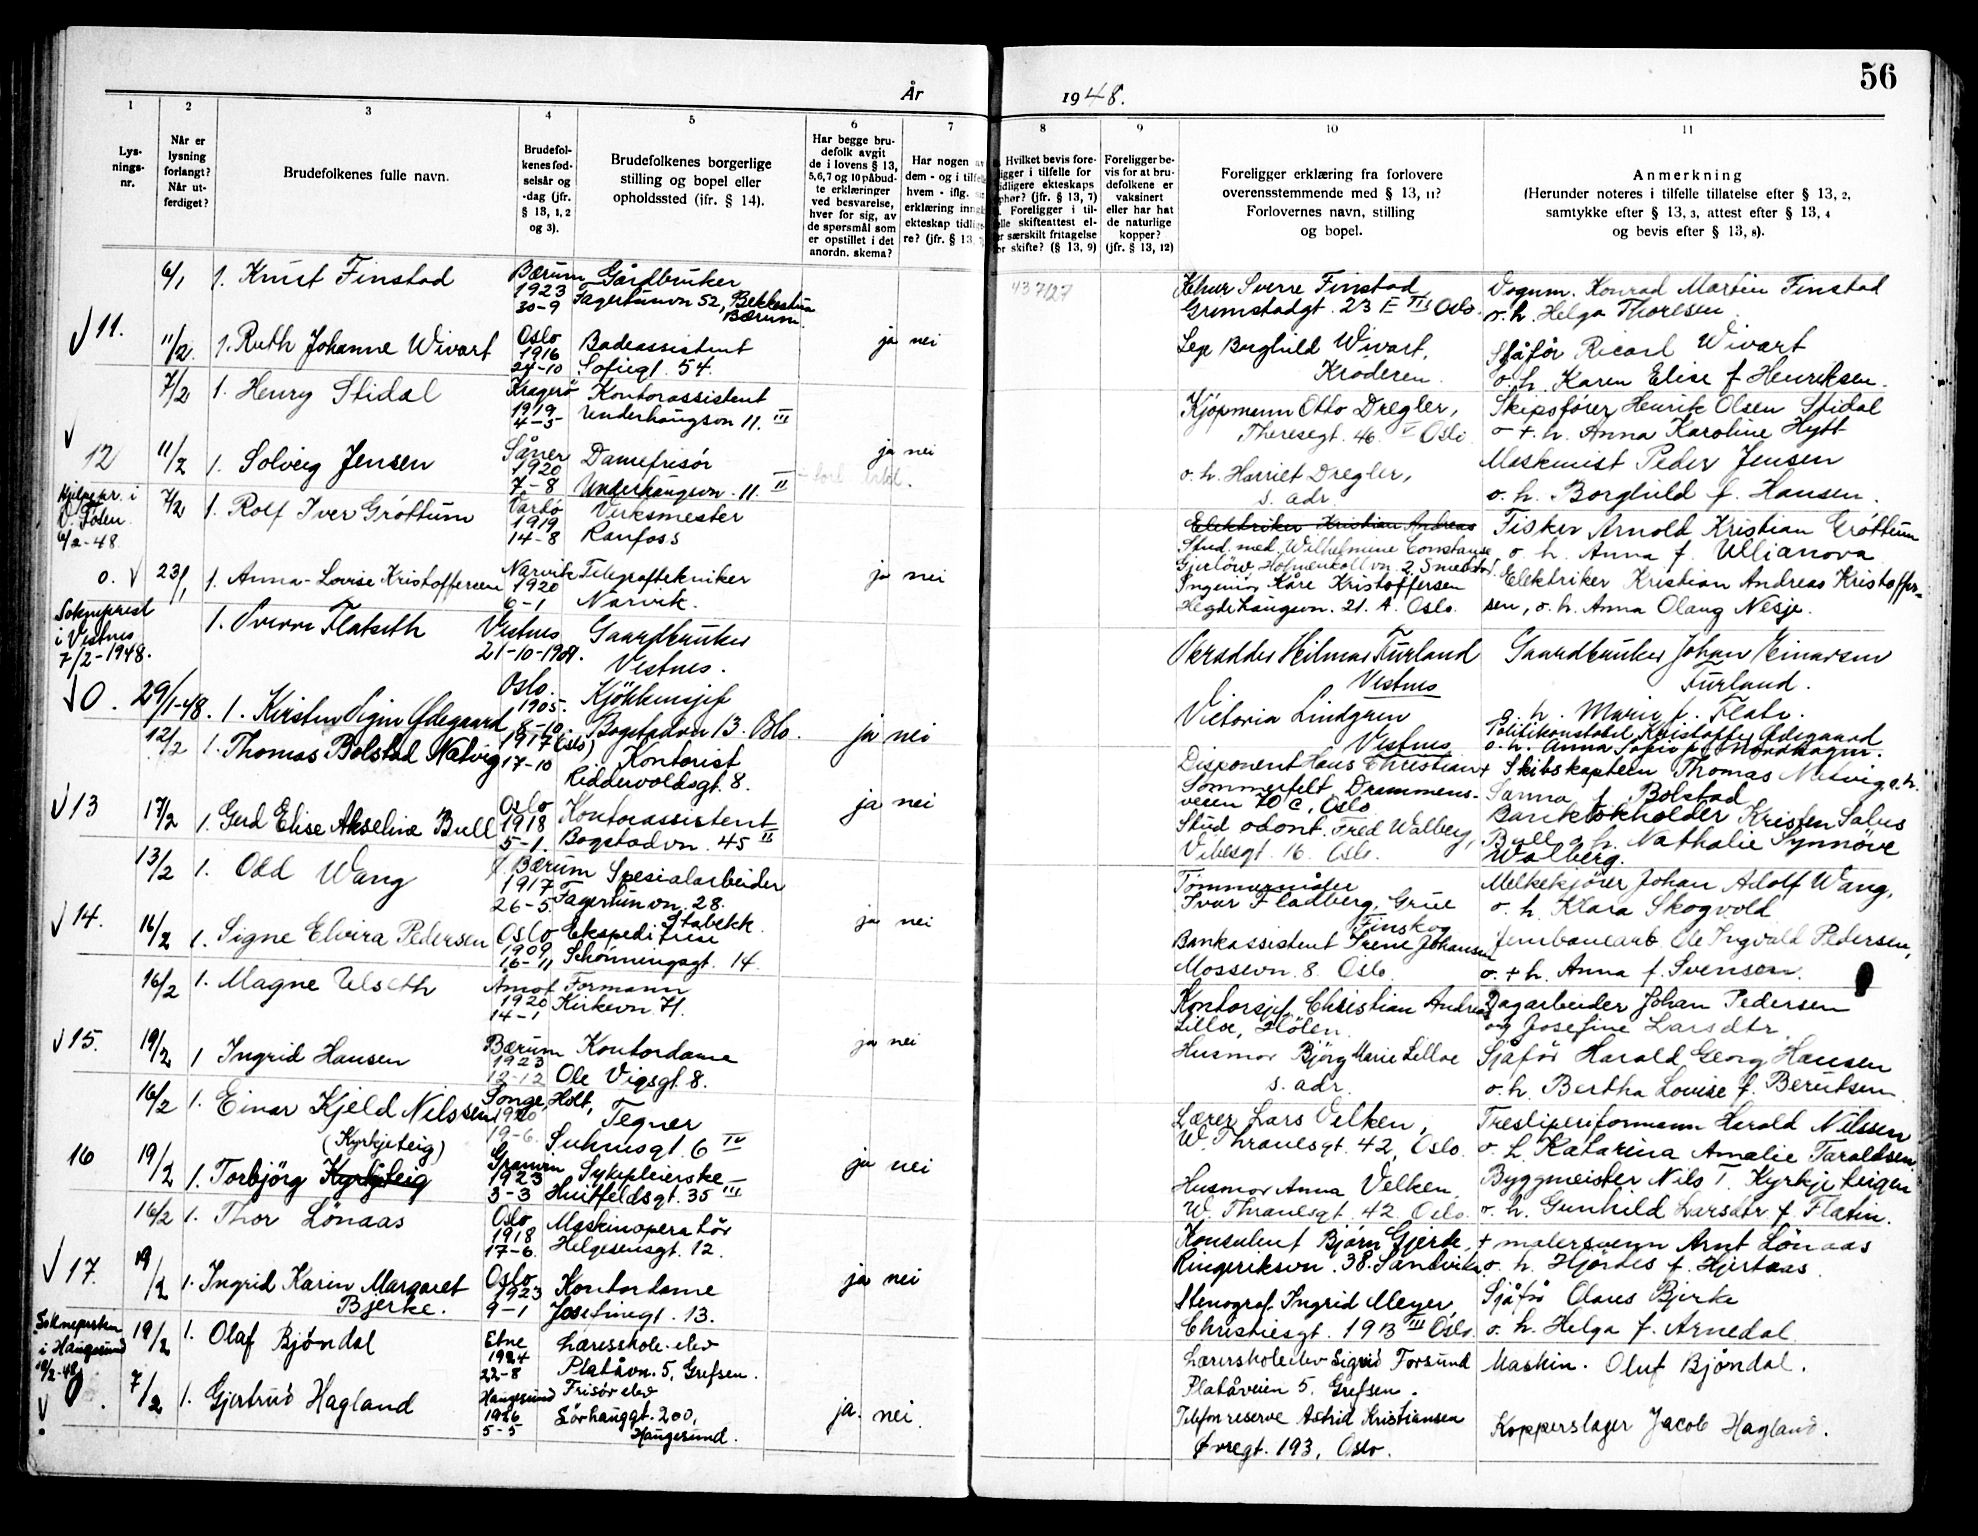 56
År 1948.
1 2 3 4 5 6 7 8 9 10 11
Lys-
nings-
nr.
Når er
lysning
forlangt?
Når ut-
ferdiget?
Brudefolkenes fulle navn.
Brudefol-
kenes fød-
selsår og
-dag (jfr.
§ 13, 1, 2
og 3).
Brudefolkenes borgerlige
stilling og bopel eller
opholdssted (ifr. § 14).
Har begge bru-
defolk avgit
de i lovens § 13,
5,6,7 og 10 påbud-
te erklæringer
ved besvarelse,
hver for sig, av
de spørsmål som
er opstillet i det
anordn. skema?
Har nogen av
dem - og i tilfelle
hvem - iflg. sin
erklæring inngått
ekteskap tidlige-
re? (jfr. § 13,
Hvilket bevis fore-
ligger i tilfelle for
tidligere ekteskaps
ophør? (jfr. § 13, 7)
Foreligger i til-
felle skifteattest el-
ler særskilt fritagelse
for skifte? (§ 13, 9)
Foreligger be-
vis for at bru-
defolkene er
vaksinert
eller har hat
de naturlige
kopper?
(jfr. § 13, 12)
Foreligger erklæring fra forlovere
overensstemmende med § 13, 11?
Forlovernes navn, stilling
og bopel.
Anmerkning
(Herunder noteres i tilfelle tillatelse efter § 13, 2,
samtykke efter § 13, 3, attest efter § 13, 4
og bevis efter § 13, 8).
6/1 1. Knut Finstad
Bærum
1923
30-9
Gårdbruker
Fagertunvn 52, Bekkestua
Bærum.
43 7/27
Sverre Finstad
Grimstadgt. 23 II Oslo.
Vognm. Konrad Martin Finstad
o.h. Helga Thorlsen
11. 11/2. 1. Ruth Johanne Wivart
Oslo
1916
24-10
Badeassistent
Sofiegt. 54.
ja nei
Borghild Wivart,
Krøderen.
Sjåfør Ricard Wivart
o.h. Karen Elise f Henriksen.
7/2 1. Henry Stidal
Kragerø
1919
4-5
Kontorassistent
Underhaugsvn 11. III
Kjøpmann Otto Dregler,
Theresegt. 46. V Oslo
Skipsfører Henrik Olsen Stidal
o + h. Anna Karoline Hytt
12 11/2 1. Solveig Jensen
Såner
1920
7-8
Damefrisør
Underhaugsvn. 11. II
ja nei
o.h. Harriet Dregler,
s. adr
Maskinist Peder Jensen
o.h. Borghild f. Hansen.
Hjelpepr. i
V. Toten
6/2-48.
7/2 1. Rolf Iver Grøttum
Vardø
1919
14-8
Verksmester
Raufoss
Elektriker Kristian Andreas
Stud. med. Wilhelmine Constanse
Gjerløw, Holmenkollvn. 2, Smestad.
Fisker Arnold Kristian Grøttum
o.h. Anna f. Ullianova
o. 23/1 1. Anna-Lovise Kristoffersen
Narvik
1920
6-1
Telegraftekniker
Narvik.
ja nei
Ingeniør Kåre Kristoffersen
Hegdehaugsvn. 21. A. Oslo.
Elektriker Kristian Andreas Kristoffer-
sen, o.h. Anna Olaug Nesje.
Sokneprest
i Vestnes
7/2-1948.
1. Sverre Flatseth
Vestnes
21-10-1909.
Gaardbruker
Vestnes.
Skrædder Hilmar Furland
Vestnes
Gaardbruker Johan Einarsen
Furland.
o.h. Marie f. Flate.
0. 29/1-48. 1. Kirsten Signe Ødegaard
Oslo.
1905.
8-10.
Kjøkkensjef
Bogstadvn 13. Oslo.
ja nei
Victoria Lindgren
Vestnes
Politikonstabel Kristoffer Ødegaard
o.h. Anna Sofie f. Nordhagen.
12/2 1. Thomas Bolstad Natvig
1917 (Oslo)
17-10
Kontorist
Riddervoldsgt. 8.
Disponent Hans Christian
Sommerfelt, Drammens-
veien 70 c, Oslo
+ Skibskaptein Thomas Natvig, o.h.
Sanna f. Bolstad
13 17/2 1. Gerd Elise Akseline Bull
Oslo
1918
5-1.
Kontorassistent
Bogstadvn. 45 II
ja nei
Stud odont. Fred Walberg,
Vibesgt. 16. Oslo.
Bankbokholder Kristen Salus
Bull o.h. Nathalie Synnøve
Walberg.
13/2 1. Odd Wang
V. Bærum
1917
26-5.
Spesialarbeider
Fagertunvn. 28.
Stabekk.
Tømmermåler
Ivar Fladberg, Grue
Finskog
Melkekjører Johan Adolf Wang,
o.h. Klara Skogvold
14. 16/2 1. Signe Elvira Pedersen
Oslo
1909
16-11
Ekspeditrise
Schønningsgt. 14.
ja nei
Bankassistent Irene Johansen
Mossevn. 8. Oslo.
Jernbanearb Ole Ingvald Pedersen,
o. + h. Anna f. Svensen.
16/2 1. Magne Ulseth
Åmot
1920
14-1
Formann
Kirkevn 71.
Kontorsjef Christian Andreas
Lilloe, Hølen.
Dagarbeider Johan Pedersen
og Josefine Larsdtr.
15. 19/2 1 Ingrid Hansen
Bærum
1923
12-12
Kontordame
Ole Vigsgt. 8.
ja nei
Husmor Bjørg Marie Lilloe
s. adr.
Sjåfør Harald Georg Hansen
o.h. Bertha Lovise f. Berntsen
16/2 1. Einar Kjeld Nilssen
Songe, Holt,
1920
19-6.
Tegner
Suhmsgt. 6 IV
Lærer Lars Velken,
W. Thranesgt. 42, Oslo.
Tresliperiformann Harald Nilssen
o. h. Katarina Amalie Taraldsen.
16 19/2 1. Torbjörg Kyrkjeteig
(Kyrkjeteig)
Granvin
1923
3-3
Sykepleierske
Huitfeldsgt. 35 III
ja nei
Husmor Anna Velken,
W. Thranesgt. 42. Oslo.
Byggmeister Nils T. Kyrkjeteigen
o. h. Gunhild Larsdtr f. Flaten.
16/2 1. Thor Lönaas
Oslo
1918
17-6.
Maskinoperatör
Helgesensgt. 12.
Konsulent Bjørn Gjerde,
Ringeriksvn. 38. Sandvika
+ malersvenn Arnt Lönaas
o. h. Hjördis f. Hjertaas
17. 19/2 1. Ingrid Karin Margaret
Bjerke.
Oslo
1923
9-1
Kontordame
Josefinegt. 13.
ja nei
Stenograf Ingrid Meyer,
Christiesgt. 19 B III Oslo
Sjåfør Olaus Bjerke
o. h. Helga f. Arnedal.
Sokneprsten
i Haugesund
10/2-48
19/2 1. Olaf Bjöndal
Etne
1924
22-8
Læreskole-elev
Platåvn. 5, Grefsen.
Lærerskoleelev Sigrid Forsund
Platåveien 5, Grefsen.
Maskin. Oluf Bjöndal.
7/2 1. Gjertrud Hagland
Haugesund
1926
5-5
Frisör elev
Sörhauggt. 200,
Haugesund.
ja. nei.
Telefonreserve Astrid Kristiansen
Øvregt. 193, Oslo.
Kopperslager Jacob Hagland.